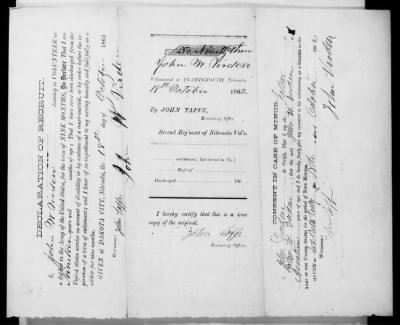 DECLARATION OF RECRUIT.
I, John W
desiring to VOLUNTEER as
a Soldier in the Army of the United States, for the term of NINE MONTHS, Do Declare, That I am
Nineteen years and months of age; That I have never been discharged from the
United States service on account of disability or by sentence of a court-martial, or by order before the ex-
piration of a term of enlistment; and I know of no impediment to my serving honestly and faithfully as a
soldier for nine months.
GIVEN at DAKOTA CITY, Nebraska, the 18th day of October 1862
John W
Witness: John Taffe
No. Ninety three
John W.
Volunteered at PLATTSMOUTH, Nebraska,
18th October 1862,
By JOHN TAFFE,
Recruiting Officer.
Second Regiment of Nebraska Vol's.
enlistment; last served in Co. (
Reg't of
Discharged 186
I hereby certify that this is a true
copy of the original.
John Taffe
Recruiting Officer.
CONSENT IN CASE OF MINOR.
I, John
Do Certify, That I am the
father of John W
that the said
years of age; and I do hereby freely give my consent to his volunteering as a Soldier in the
ARMY OF THE UNITED STATES for the period of Nine Months.
GIVEN at Dakota City the 18th day of October 1862
John
Witness: John Taffe